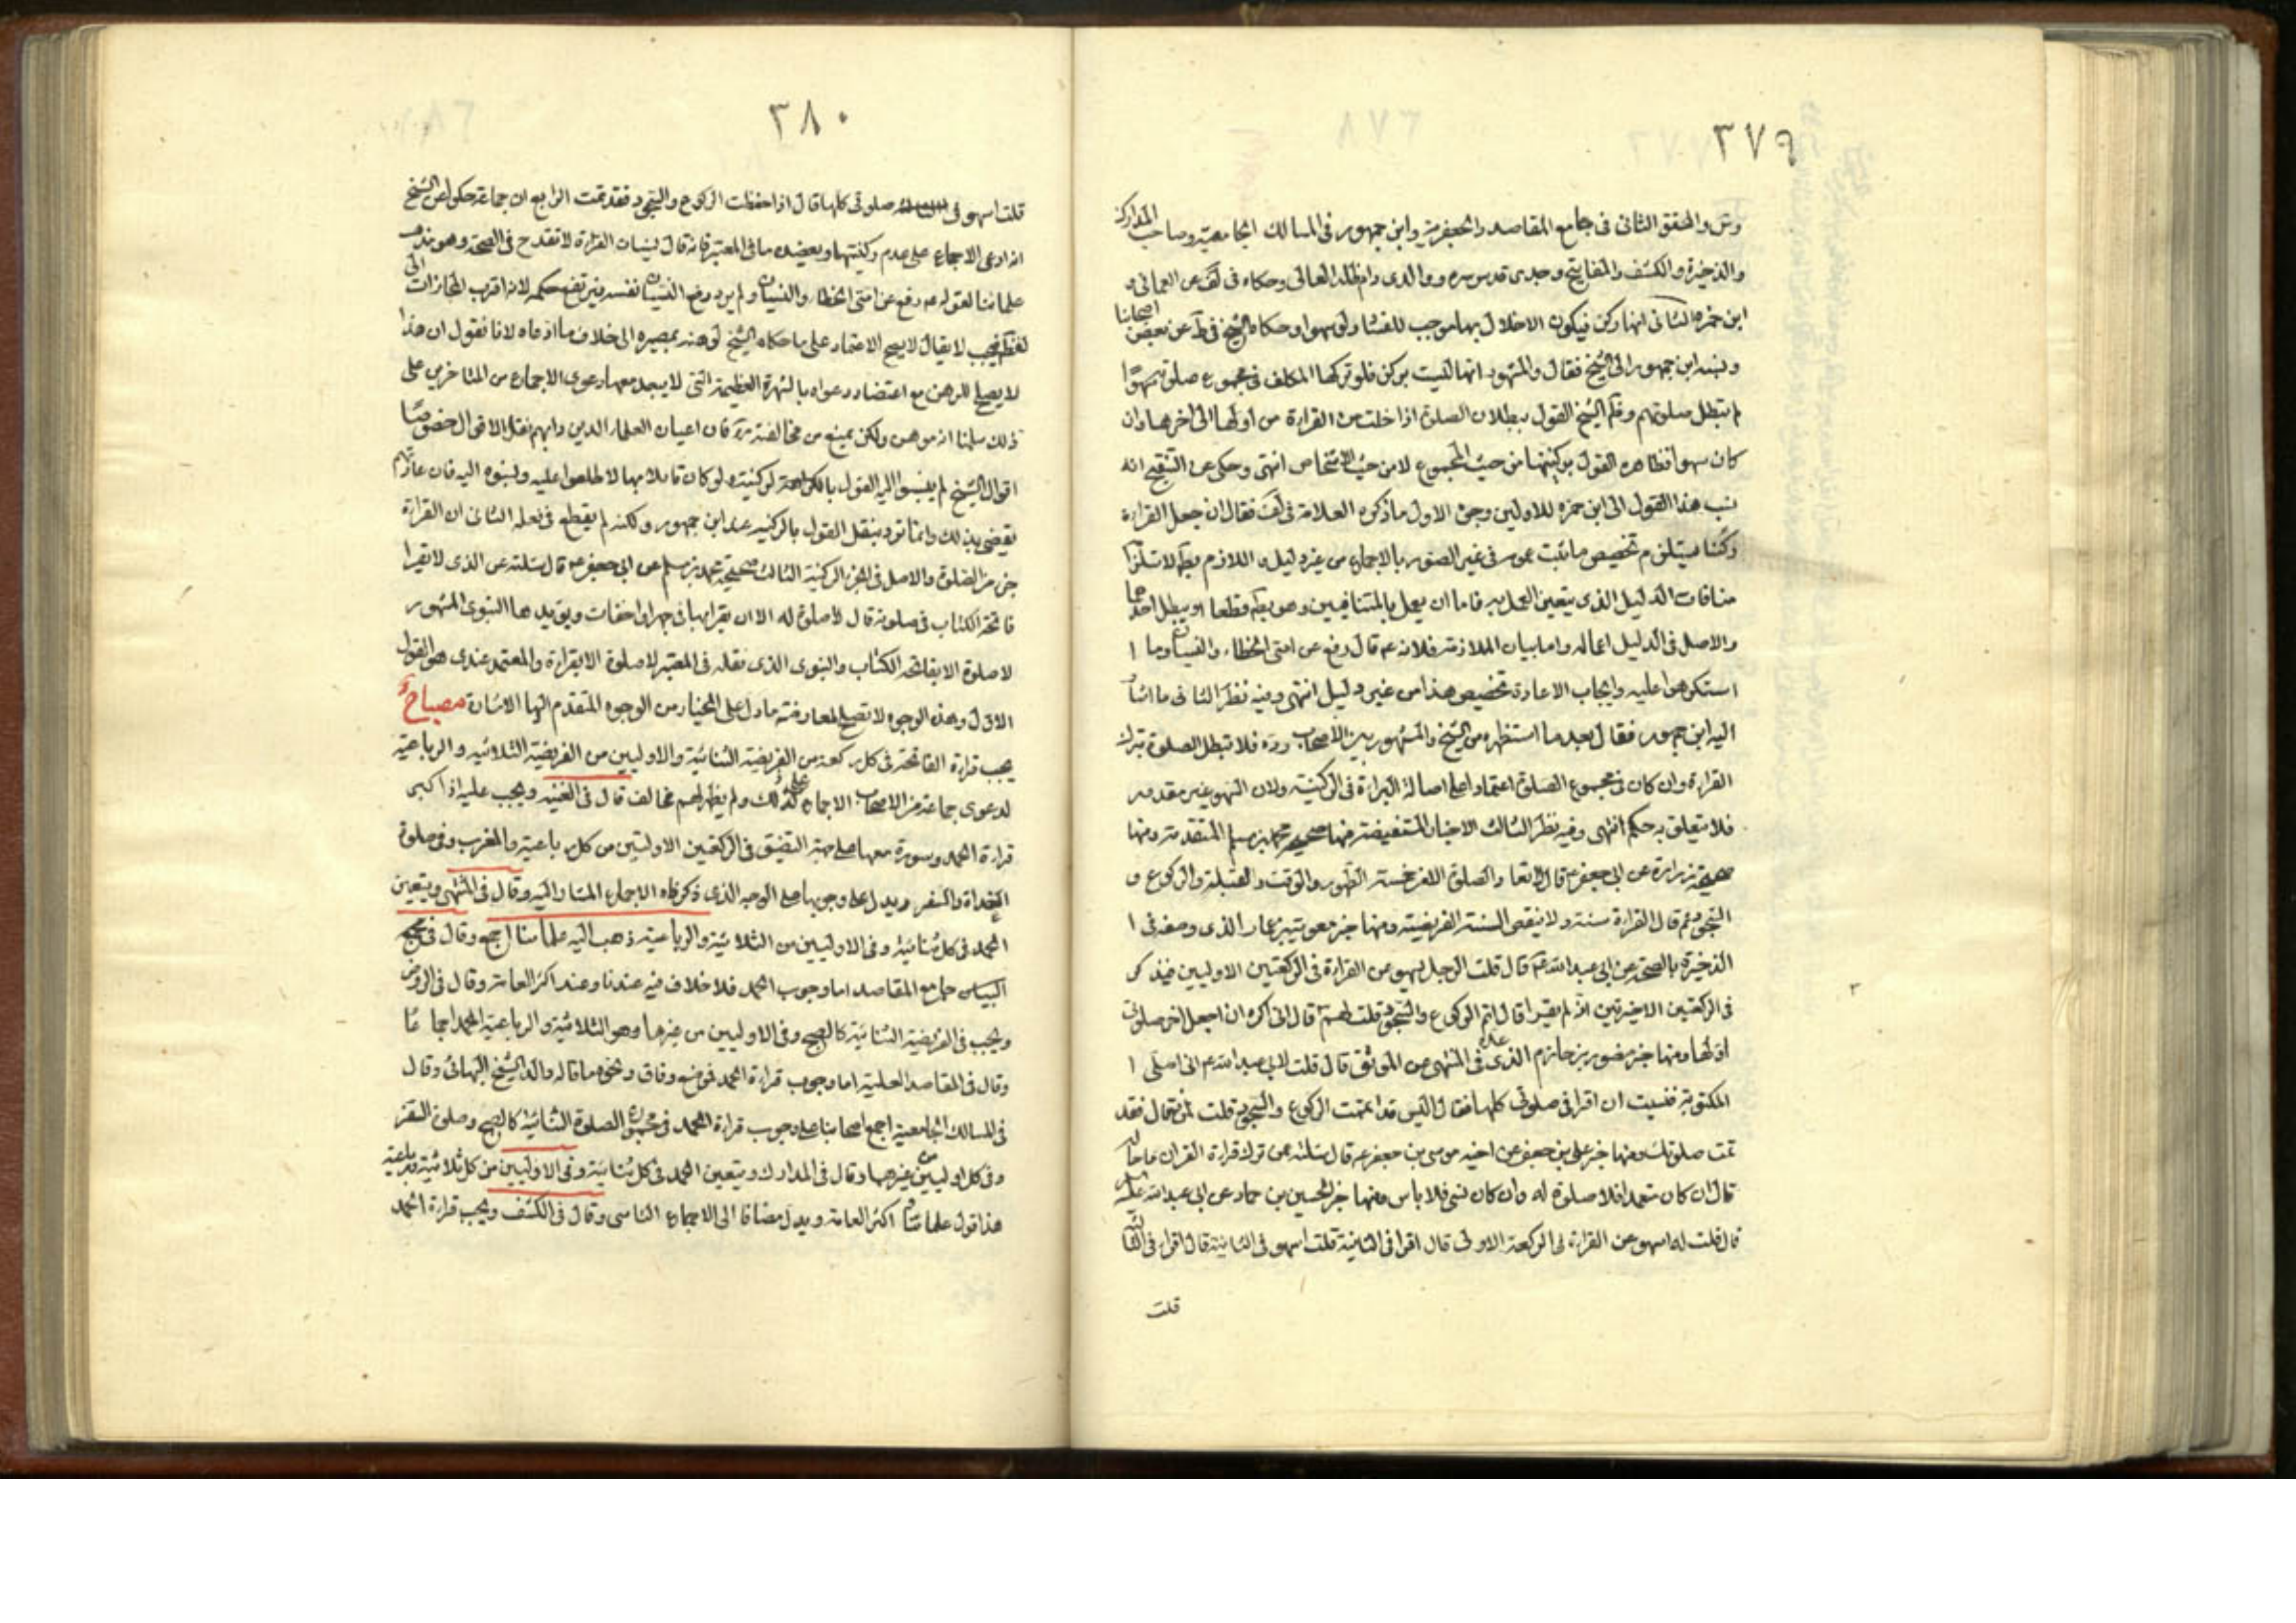 ٣٧٩
وش والمحقق الثانى فى جامع المقاصد والجعفرية وابن جمهور فى المسالك الجامعية وصاحب المدارك
والذخيرة والكشف والمفاتيح وجدى قدس سره ووالدى دام ظله العالى وحكاه فى لف عن العمانى و
ابن حمزه الثانى انها ركن فيكون الاخلال بها موجب للفساد ولو سهوا وحكاه الشيخ فى ط عن بعض اصحابنا
ونسبه ابن جمهور الى الشيخ فقال والمشهور انها ليست بركن فلو تركها المكلف فى مجموع صلوته سهوًا
لم تبطل صلوتهم الشيخ القول ببطلان الصلوة اذا خلت من القراءة من اولها الى اخرها وان
كان سهوا فظاهره القول بركنيتها من حيث المجموع لا من حيث الاشخاص انتهى وحكى عن التنقيح انه
نسب هذا القول الى ابن حمزه للاولين وجوه الاول ما ذكره العلامة فى لف فقال ان جعل القراءة
ركنا يستلزم تخصيص ما ثبت عمومه فى غير الصور بالاجماع من غير دليل و اللازم بط لاستلزامه
منافات الدليل الذى يتعين العمل به فاما ان يعمل بالمتنافيين وهو بط قطعا او يبطل احدهما
والاصل فى الدليل اعماله واما بيان الملازمة فلانه عم قال رفع عن امتى الخطاء والنسيان وما ا
استكرهوا عليه وايجاب الاعادة تخصيص هذا من غير دليل انتهى وفيه نظر الثانى ما اشار
اليه ابن جمهور فقال بعد ما استظهره من الشيخ والمشهور بين الاصحاب رده فلا تبطل الصلوة بترك
القراءة وان كان فى مجموع الصلوة اعتمادا على اصالة البراءة فى الركنية ولان السهو غير مقدور
فلا يتعلق به حكم انتهى وفيه نظر الثالث الاخبار المستفيضة منها صحيح محمد بن مسلم المتقدمة ومنها
صحيحة زرارة عن ابى جعفر عم قال لا تعاد الصلوة الا من خمسة الطهور والوقت والقبلة والركوع و
السجود ثم قال القراءة سنة ولا ينقص السنة الفريضة ومنها خبر معوية بن عمار الذى وصفه فى ا
الذخيرة بالصحة عن ابى عبد الله عم قال قلت الرجل يسهو عن القراءة فى الركعتين الاوليين فيذكر
فى الركعتين الاخيرتين انه لم يقرا قال اتم الركوع والسجود قلت نعم قال انى اكره ان اجعل اخر صلوتى
اولها ومنها خبر منصور بن حازم الذى عده فى المنتهى من الموثق قال قلت لابى عبد الله عم انى اصلى ا
المكتوبة فنسيت ان اقرا فى صلوتى كلها فقال اليس قد اتممت الركوع والسجود قلت بلى فقال فقد
تمت صلوتك ومنها خبر على بن جعفر عن اخيه موسى بن جعفر عم قال سئلته عن ترك قراءة القران ما حاله
قال ان كان متعمدا فلا صلوة له وان كان نسى فلا باس ومنها خبر الحسين بن حماد عن ابى عبد الله عم
قال قلت له اسهو عن القراءة فى الركعة الاولى قال اقرا فى الثانية قلت اسهو فى الثانية قال اقرا فى الثالثة
قلت
٣٨٠
قلت اسهو فى صلوتى كلها قال اذا حفظت الركوع والسجود فقد تمت الرابع ان جماعة حكوا عن الشيخ
انه ادعى الاجماع على عدم ركنيتها ويعضده ما فى المعتبر فانه قال نسيان القراءة لا تقدح فى الصحة وهو مذهب
علمائنا لقوله عم رفع عن امتى الخطاء والنسيان ولم يرد رفع النسيان نفسه فيرتفع حكمه لانه اقرب المجازات الى
لفظه فيجب لا يقال لا يصح الاعتماد على ما حكاه الشيخ لوهنه بمصيره الى خلاف ما ادعاه لانا نقول ان هذا
لا يصلح للوهن مع اعتضاد دعواه بالشهرة العظيمة التى لا يبعد معها دعوى الاجماع من المتاخرين على
ذلك سلمنا انه موهن ولكن يمنع من مخالفته فان اعيان العلماء الذين دابهم نقل الاقوال خصوصًا
اقوال الشيخ لم ينسبوا اليه القول بالركنية ولو كان قائلا بها لاطلعوا عليه ونسبوه اليه فان عادتهم
تقتضى بذلك وانما تفرد بنقل القول بالركنية عنه ابن جمهور ولكنه لم يقطع فى نقله الثانى ان القراءة
جزء من الصلوة والاصل فى الجزء الركنية الثالث صحيحة محمد بن مسلم عن ابى جعفر عم قال سئلته عن الذى لا يقرا
فاتحة الكتاب فى صلوته قال لا صلوة له الا ان يقرا بها فى جهر او اخفات ويؤيدها النبوى المشهور
لا صلوة الا بفاتحة الكتاب والنبوى الذى نقله فى المعتبر لا صلوة الا بقراءة والمعتمد عندى هو القول
الاول وهذه الوجوه لا تصلح لمعارضة ما دل على المختار من الوجوه المتقدم اليها الاشارة مصباح
يجب قراءة الفاتحة فى كل ركعة من الفريضة الثنائية والاوليين من الفريضة الثلاثية والرباعية
لدعوى جماعة من الاصحاب الاجماع على ذلك ولم يظهر لهم مخالف قال فى الغنية ويجب عليه اذا كبر
قراءة الحمد وسورة معها على جهة التضيق فى الركعتين الاوليين من كل رباعية والمغرب وفى صلوة
الغداة والسفر ويدل على وجوبها على الوجه الذى ذكرناه الاجماع المشار اليه وقال فى المنتهى ويتعين
الحمد فى كل ثنائية وفى الاوليين من الثلاثية والرباعية ذهب اليه علمائنا اجمع وقال فى مجمع
البيان جامع المقاصد اما وجوب الحمد فلا خلاف فيه عندنا وعند اكثر العامة وقال فى الروض
ويجب فى الفريضة الثنائية كالصبح وفى الاوليين من غيرها وهو الثلاثية والرباعية الحمد اجماعًا
وقال فى المقاصد العلية اما وجوب قراءة الحمد فموضع وفاق ونحوه ما قاله والد الشيخ البهائى وقال
فى المسالك الجامعية اجمع اصحابنا على وجوب قراءة الحمد فى الصلوة الثنائية كالصبح وصلوة السفر
وفى كل اوليين من غيرها وقال فى المدارك ويتعين الحمد فى كل ثنائية وفى الاوليين من كل ثلاثية ورباعية
هذا قول علمائنا اكثر العامة ويدل مضافا الى الاجماع التاسى وقال فى الكشف ويجب قراءة الحمد